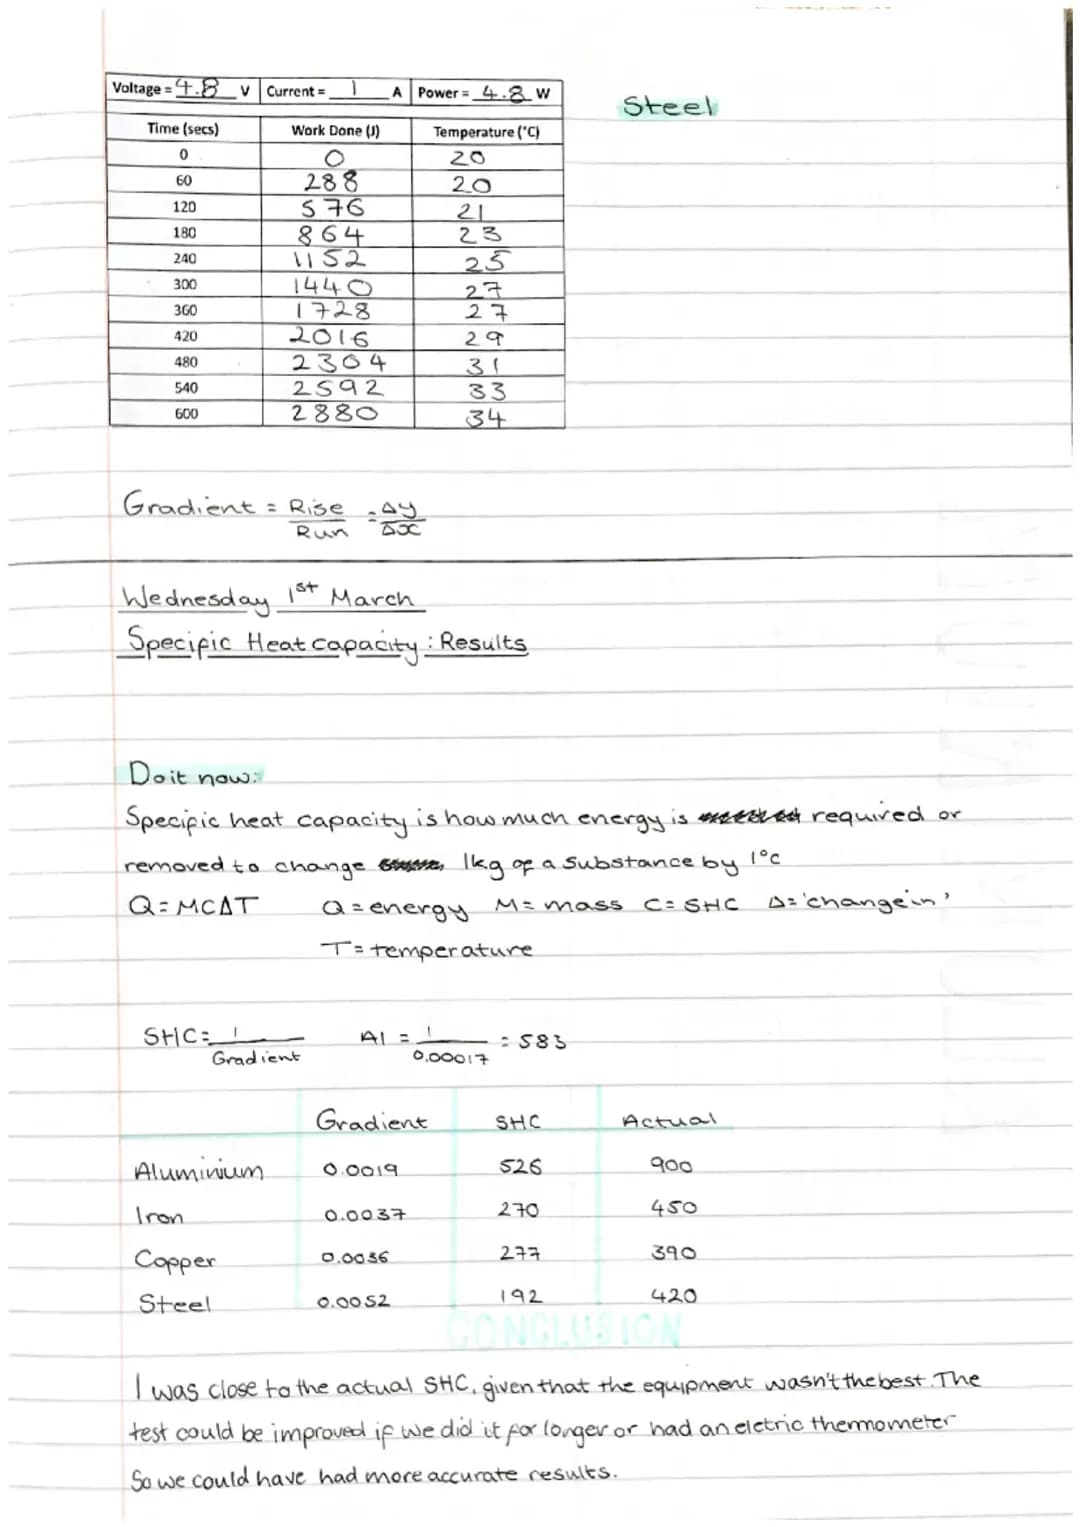 Voltage = 4.8 V Current = 1 A Power = 4.8 W
Steel
Time (secs) Work Done (J) Temperature (°C)
0 0 20
60 288 20
120 576 21
180 864 23
240 1152 25
300 1440 27
360 1728 27
420 2016 29
480 2304 31
540 2592 33
600 2880 34
Gradient = Rise/Run = Δy/Δx
Wednesday 1st March
Specific Heat capacity : Results
Do it now:
Specific heat capacity is how much energy is required or
removed to change 1kg of a substance by 1°c
Q = MCΔT Q = energy M = mass C = SHC Δ = 'change in'
T = temperature
SHC = 1/Gradient Al = 1/0.00017 = 583
Gradient SHC Actual
Aluminium 0.0019 526 900
Iron 0.0037 270 450
Copper 0.0036 277 390
Steel 0.0052 192 420
CONCLUSION
I was close to the actual SHC, given that the equipment wasn't the best. The
test could be improved if we did it for longer or had an eletric thermometer
So we could have had more accurate results.